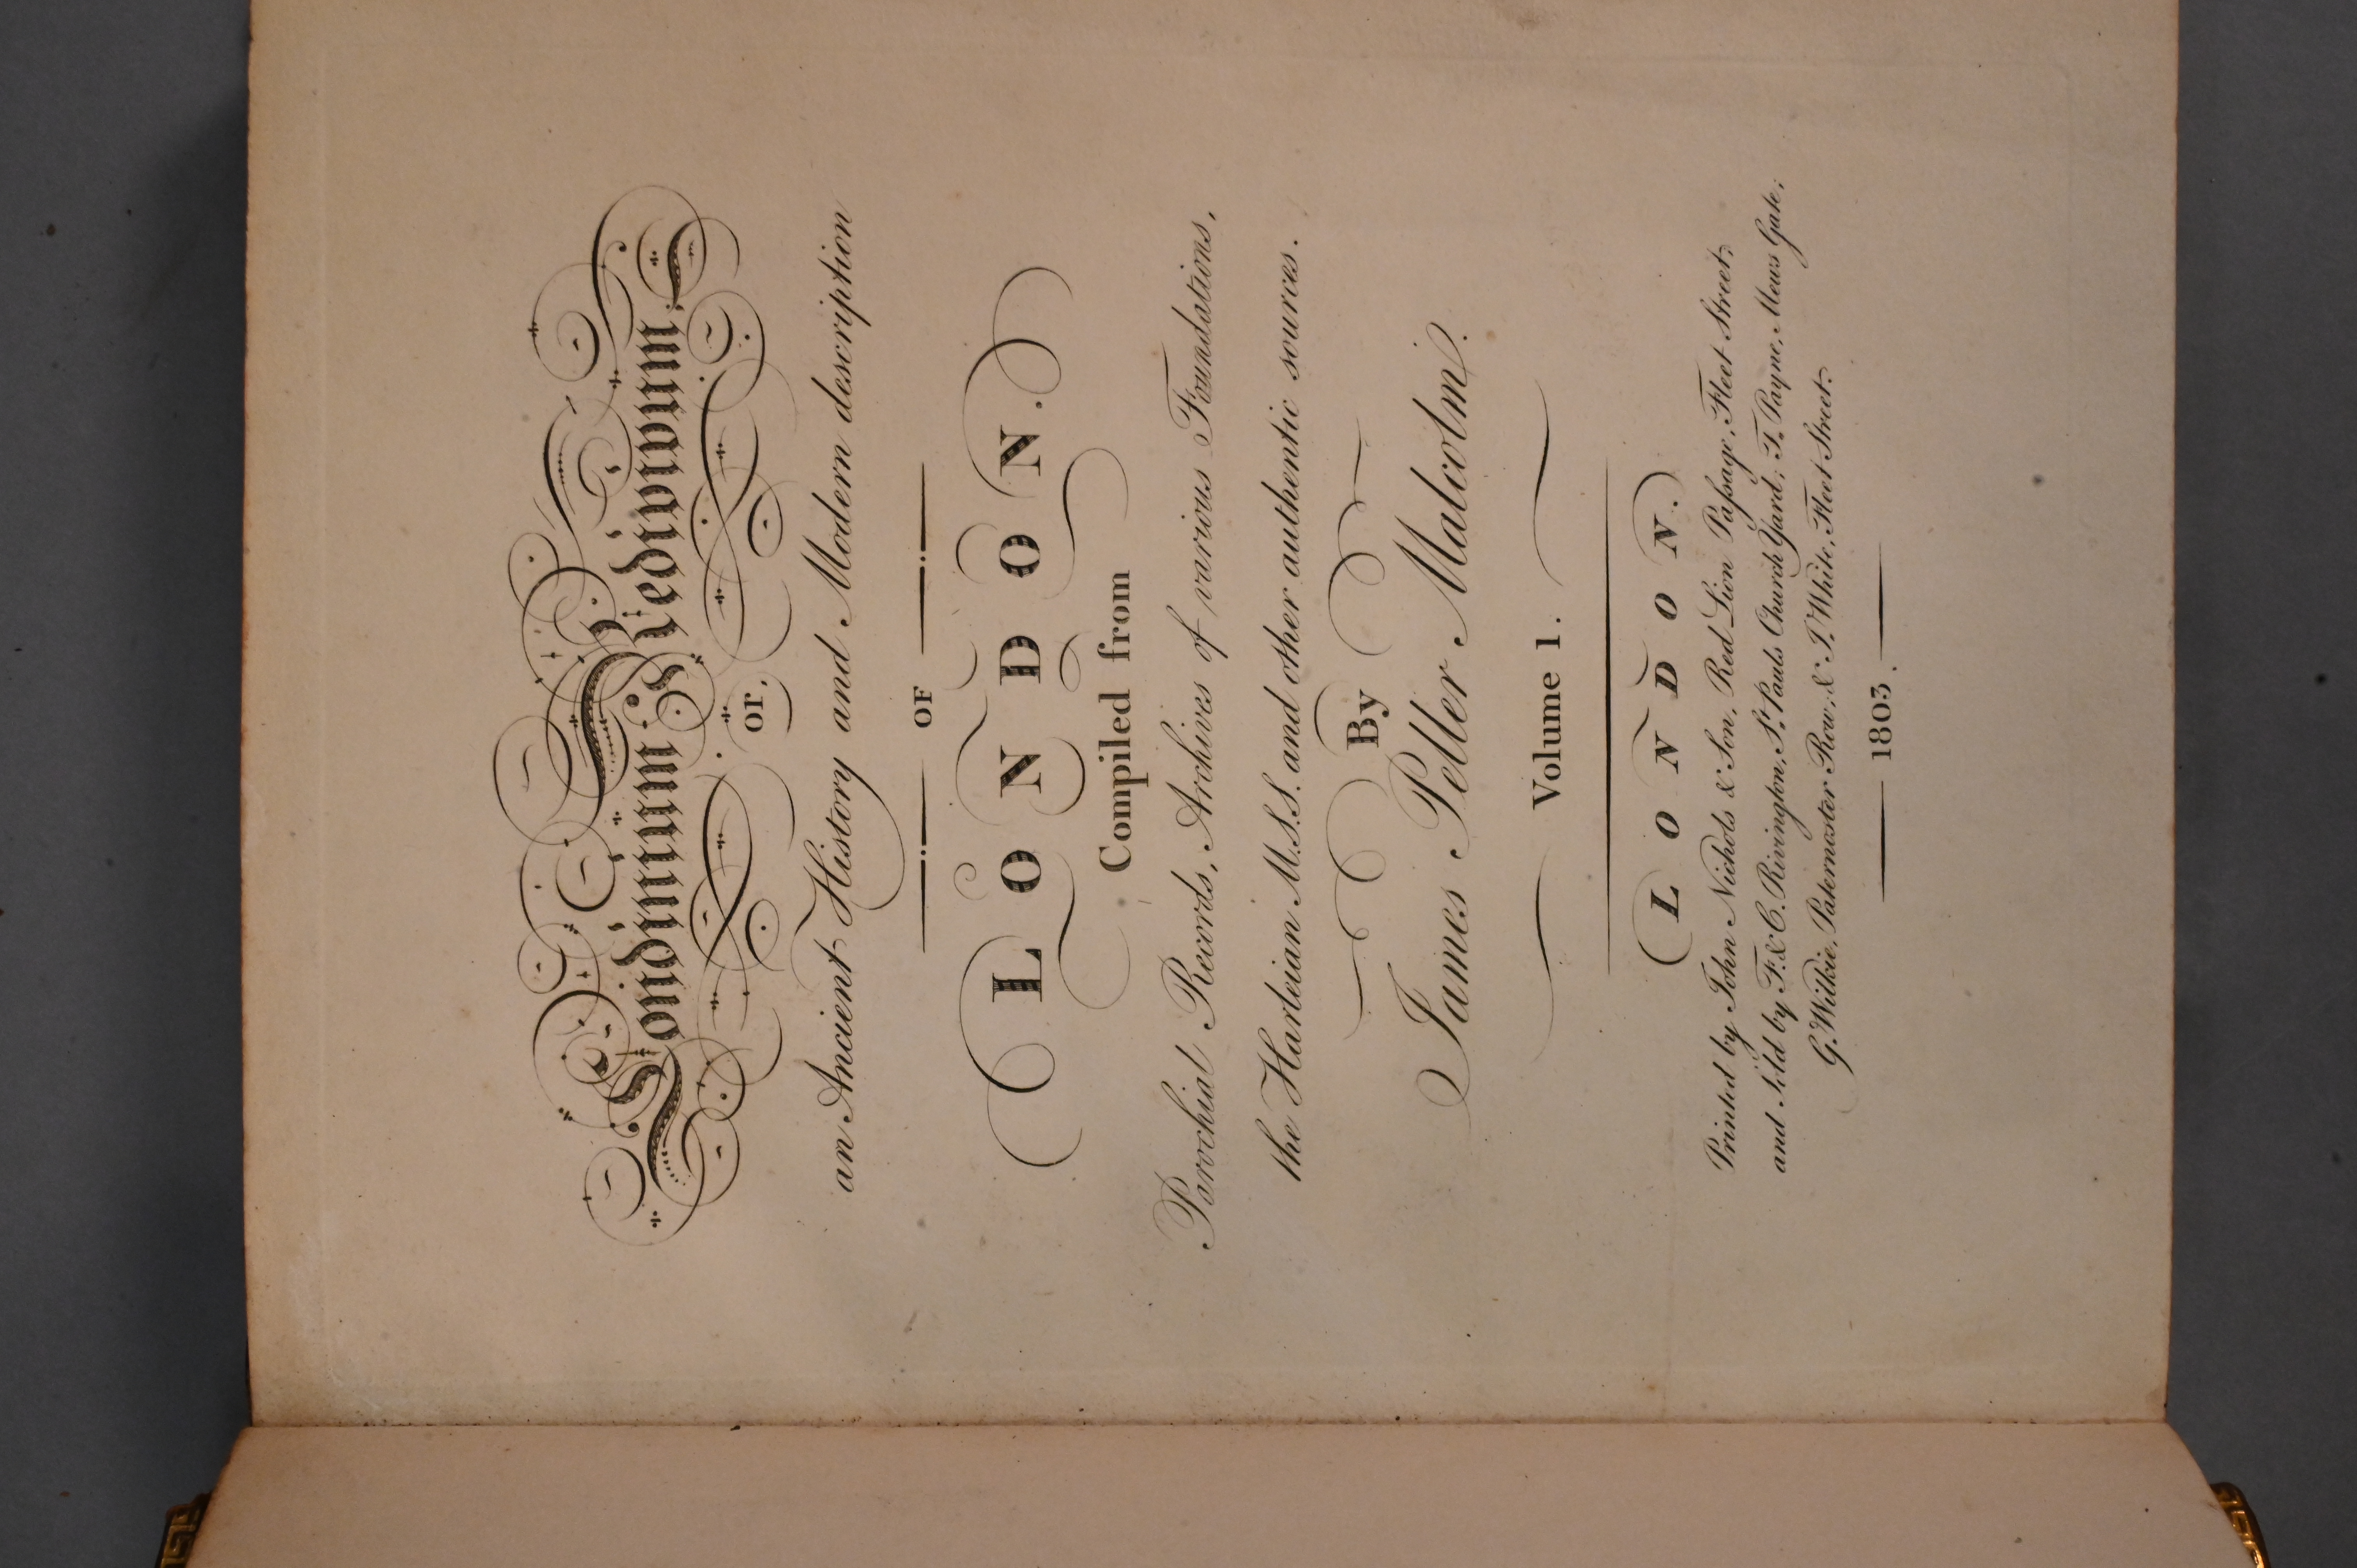 Londinium Redivivum;
or,
an Ancient History and Modern description
OF
LONDON.
Compiled from
Parochial Records, Archives of various Foundations,
the Harleian M.S.S. and other authentic sources.
By
James Peller Malcolm.
Volume 1.
LONDON.
Printed by John Nichols & Son, Red Lion Paſsage, Fleet Street;
and Sold by F. & C. Rivington, St. Pauls Church Yard; T. Payne, Mews Gate;
G. Wilkie, Paternoster Row, & J. White, Fleet Street.
1803.